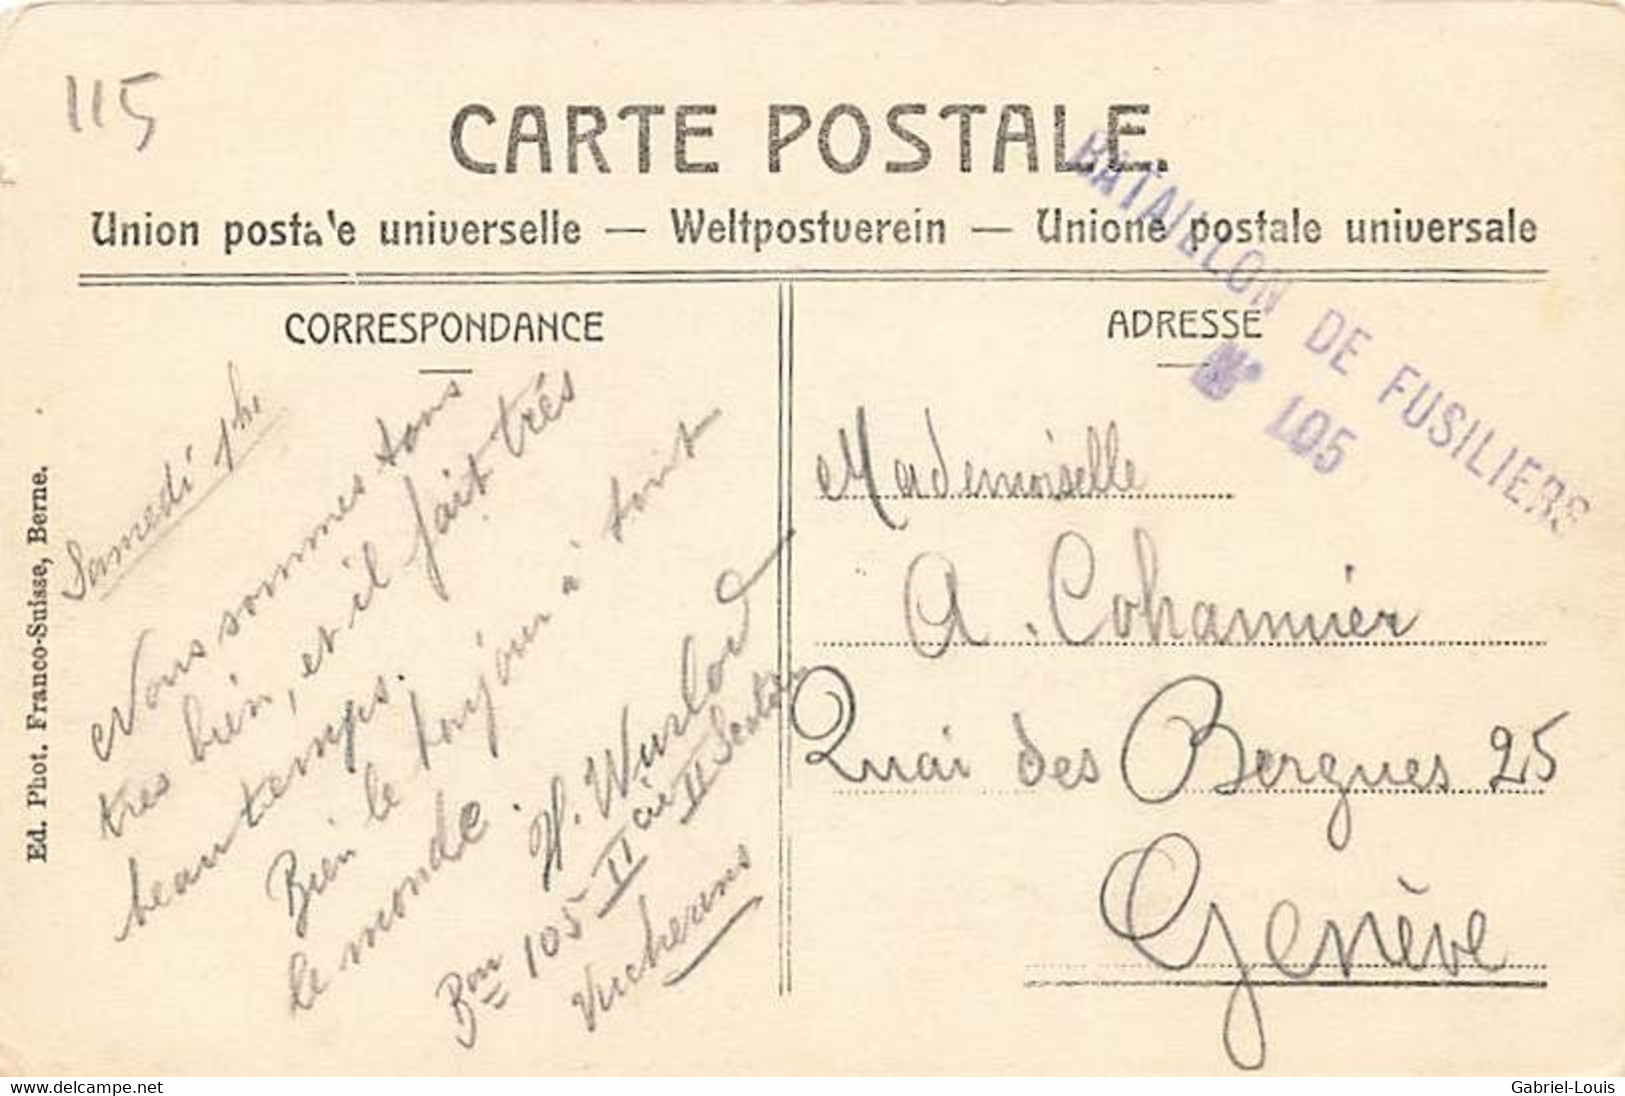 115
CARTE POSTALE
Union postale universelle — Weltpostverein — Unione postale universale
BATAILLON DE FUSILIERS
No 105
CORRESPONDANCE
Samedi 1h
Nous sommes tous
tres bien, et il fait très
beau temps.
Bien le toujour à tout
le monde.
H. Wurlod
Bon 105 II cie II Section
Vucherens
ADRESSE
Mademoiselle
A. Cohannier
Quai des Bergues 25
Genève
Ed. Phot. Franco-Suisse, Berne.
www.delcampe.net
Gabriel-Louis